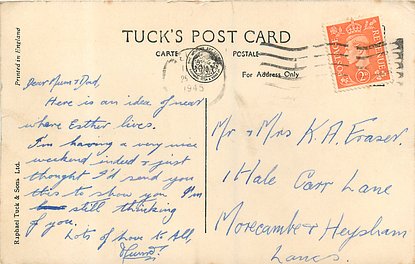 TUCK'S POST CARD
CARTE POSTALE
For Address Only
Printed in England
Raphael Tuck & Sons Ltd.
1945
POSTAGE REVENUE
2D
Dear Mum & Dad,
Here is an idea of near
where Esther lives.
I'm having a very nice
weekend indeed & just
thought I'd send you
this to show you I'm
still thinking
of you.
Lots of love to All,
Mr & Mrs K. A. Fraser.
1 Hale Carr Lane
Morecambe & Heysham
Lancs.